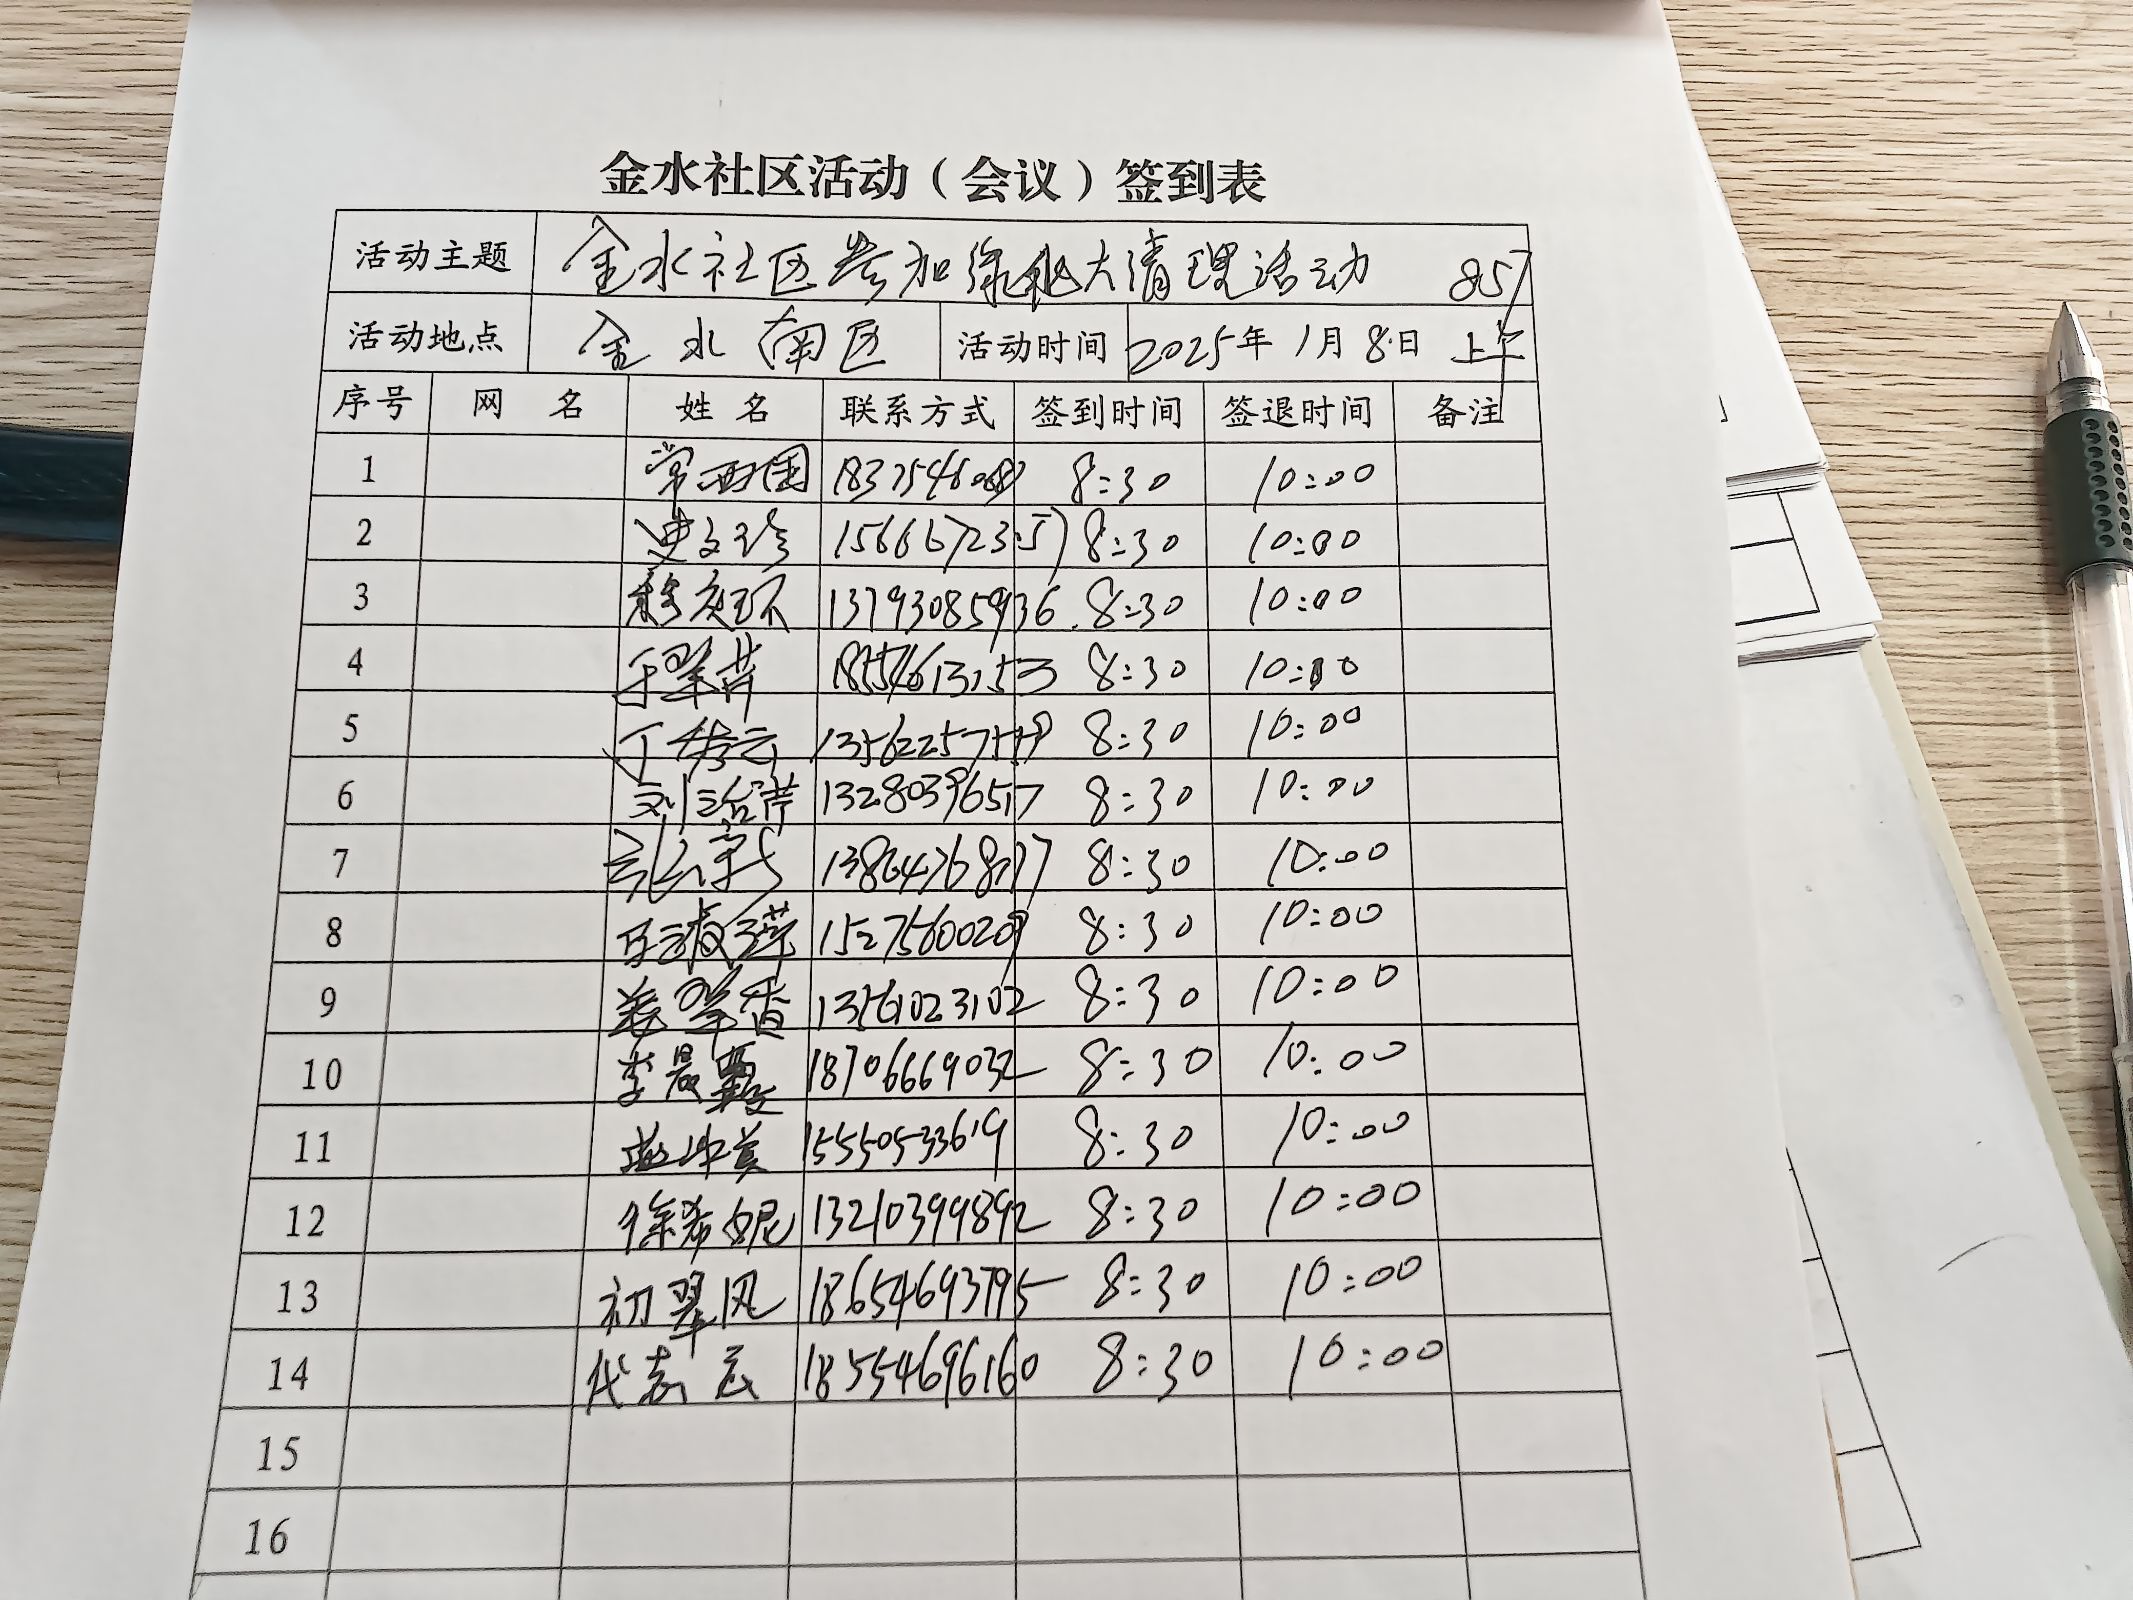 金水社区活动（会议）签到表
活动主题 金水社区参加绿化大清理活动 857
活动地点 金水南区 活动时间 2025年1月8日 上午
序号 网 名 姓 名 联系方式 签到时间 签退时间 备注
1 8:30 10:00
2 8:30 10:00
3 13793085936 8:30 10:00
4 于翠芹 8:30 10:00
5 丁秀云 8:30 10:00
6 刘治芹 13280396517 8:30 10:00
7 8:30 10:00
8 8:30 10:00
9 姜翠香 13561023102 8:30 10:00
10 李晨霞 18706669032 8:30 10:00
11 15550533619 8:30 10:00
12 徐希妮 13210399892 8:30 10:00
13 初翠凤 18654693795 8:30 10:00
14 18554696160 8:30 10:00
15
16